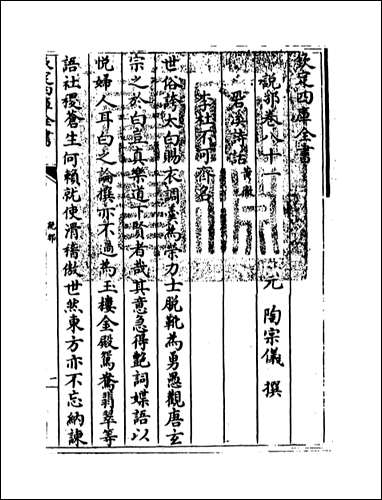 欽定四庫全書
説郛卷八十一　元　陶宗儀　撰
䂬溪詩話　黄徹
李杜不可齊名
世俗誇太白賜衣調羮為榮力士脱靴為勇愚觀唐玄
宗之於白豈真樂道
者哉其意急得艶詞媟語以
悦婦人耳白之論撰亦不過為玉樓金殿鴛鴦翡翠等
語社稷蒼生何賴就使滑稽傲世然東方亦不忘納諫
欽定四庫全書
説郛
二